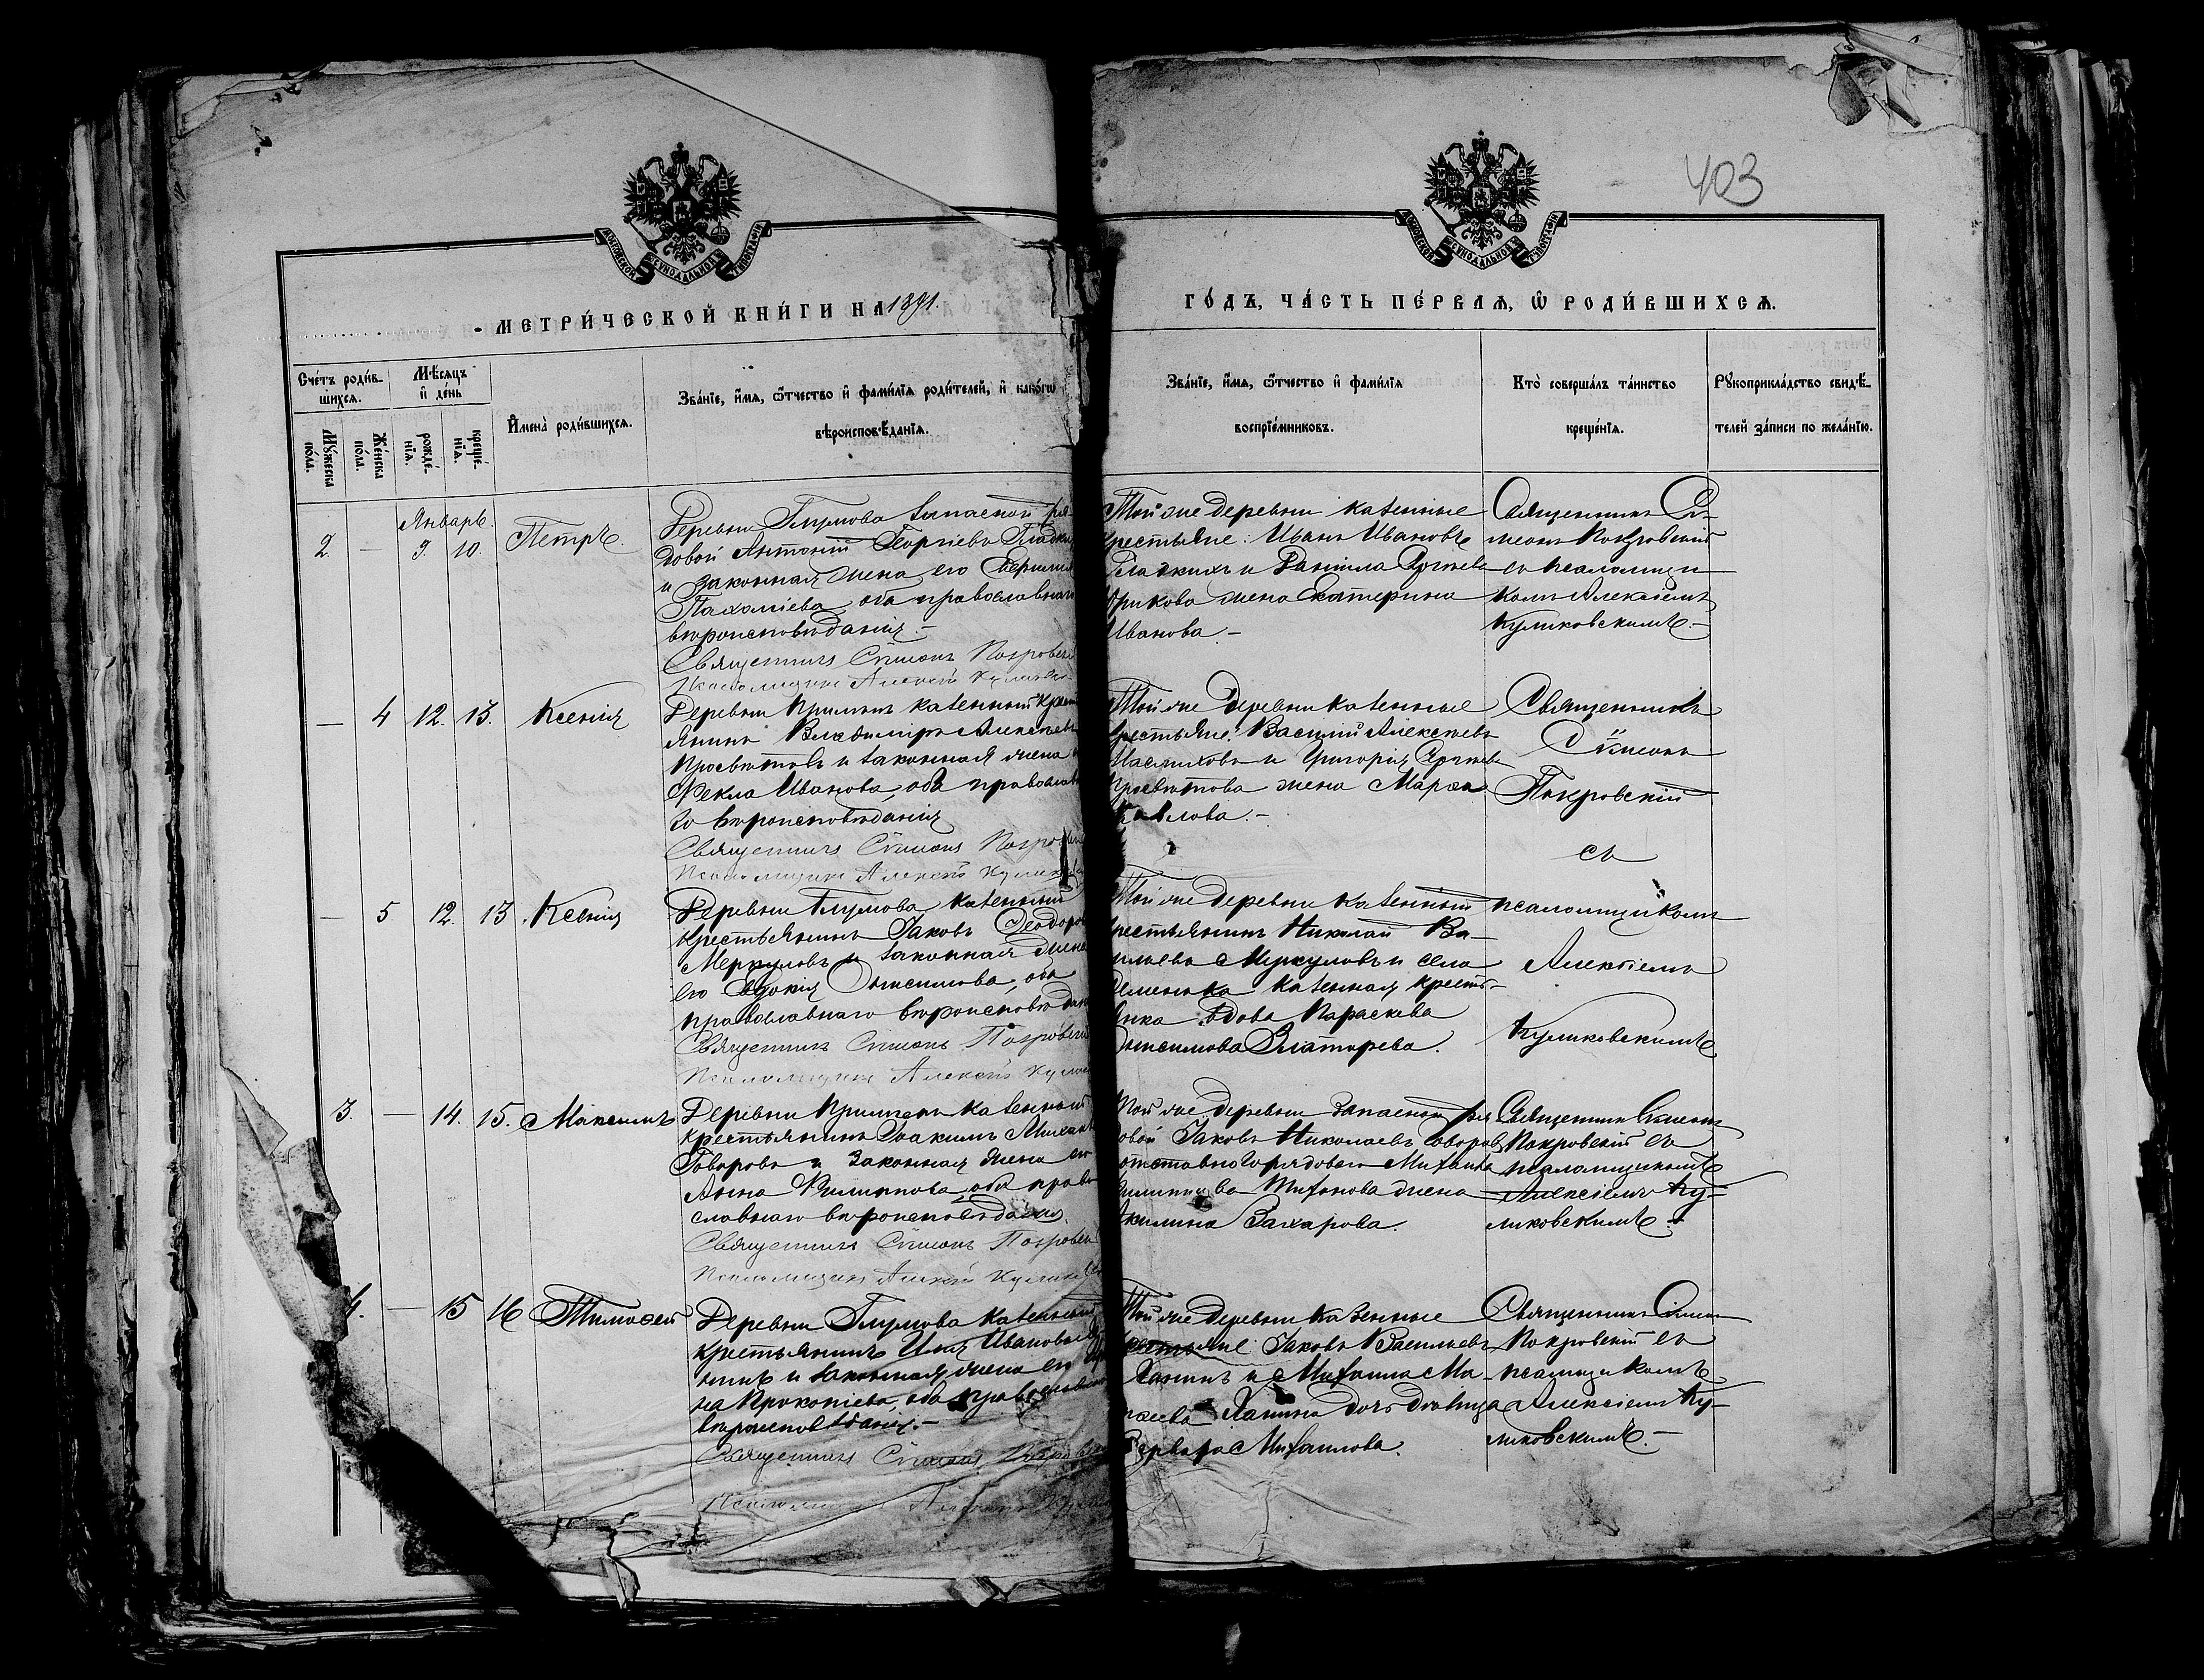 403
МОСКОВСКОЙ СѴНОДАЛЬНОЙ ТИПОГРАФІИ
МОСКОВСКОЙ СѴНОДАЛЬНОЙ ТИПОГРАФІИ
МЕТРИ́ЧЕСКОЙ КНИ́ГИ НА 1891.
ГО́ДЪ, ЧА́СТЬ ПЕ́РВАѦ, Ѡ҆ РОДИ́ВШИХСѦ.
Сче́тъ роди́в-
шихсѧ.
Мѣ́сѧцъ
и҆ де́нь
Мꙋ́жеска
по́ла.
Же́нска
по́ла.
рожде́-
нїѧ.
креще́-
нїѧ.
И҆мена̀ роди́вшихсѧ.
Зва́нїе, и҆́мѧ, ѻ҆́тчество и҆ фами́лїѧ роди́телей, и҆ како́гѡ
вѣроисповѣ́данїѧ.
Зва́нїе, и҆́мѧ, ѻ҆́тчество и҆ фами́лїѧ
воспрїе́мниковъ.
Кто̀ соверша́лъ та́инство
креще́нїѧ.
Рꙋкоприкла́дство свидѣ́-
телей за́писи по жела́нїю.
Январь.
2. — 9. 10. Петръ.
Деревни Глумова запасной ря-
довой Антоній Георгіевъ
и законная жена его
Пахоміева, оба православнаго
вѣроисповѣданія.-
Священникъ Сѵмеонъ Покровскі
Псаломщикъ Алексѣй
Той же деревни казенные
крестьяне: Иванъ Ивановъ
Гладкихъ и Даніила
жена Екатерина
Иванова.-
Священникъ Сѵ-
меонъ Покровскій
съ псаломщи-
комъ Алексіемъ
Куликовскимъ.-
— 4 12. 13. Ксенія
Деревни казенный крест
янинъ Владиміръ Алексѣевъ
Просвѣтовъ и законная жена
Ѳекла Иванова, оба православна
го вѣроисповѣданія
Священникъ Сѵмеонъ Покровскі
Псаломщикъ Алексѣй
Той же деревни казенные
крестьяне: Василій Алексѣевъ
и Григорія
Просвѣтова жена Марѳа
Павлова.-
Священникъ
Сѵмеонъ
Покровскій
съ
— 5 12. 13. Ксенія
Деревни Глумова казенный
крестьянинъ Іаковъ Ѳеодоро
Меркуловъ и законная жена
его Евдокія Онисимова, оба
православнаго вѣроисповѣдан
Священникъ Сѵмеонъ Покровскі
Псаломщикъ Алексѣй
Той же деревни казенный
крестьянинъ Николай Ва-
сильевъ Меркуловъ и села
казенная кресть-
янка вдова Параскева
Онисимова
псаломщикомъ
Алексіемъ
Куликовскимъ
3. — 14. 15. Максимъ
Деревни казенный
крестьянинъ Іоакимъ Михаил
Говоровъ и законная жена его
Анна Филиппова, оба право
славнаго вѣроисповѣданія.
Священникъ Сѵмеонъ Покровскі
Псаломщикъ Алексѣй
Той же деревни запасной ря
довой Іаковъ Николаевъ Говоровъ
отставного рядового Михаила
жена
Акилина Захарова.
Священникъ Сѵмеонъ
Покровскій съ
псаломщикомъ
Алексіемъ Ку-
ликовскимъ.-
4. — 15 16 Тимоѳей
Деревни Глумова казенный
крестьянинъ Илія Ивановъ
и законная жена его
на Прокопіева, оба православна
вѣроисповѣданія.-
Священникъ Сѵмеонъ
Псаломщикъ
Той же деревни казенные
крестьяне: Іаковъ Васильевъ
и Михаила Ма-
дочь дѣвица
Варвара Михаилова.
Священникъ Сѵмеонъ
Покровскій съ
псаломщикомъ
Алексіемъ Ку-
ликовскимъ.-